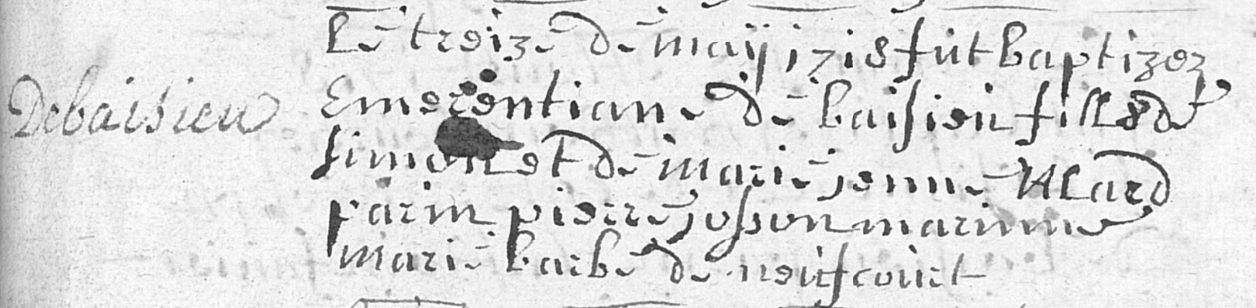 Le treize de maÿ 1718 fut baptizez
Debaisieu
Emerentiane de baisieu fille de
simon et de marie jenne Alard
parin pierre josson marinne
marie barbe de neufcourt